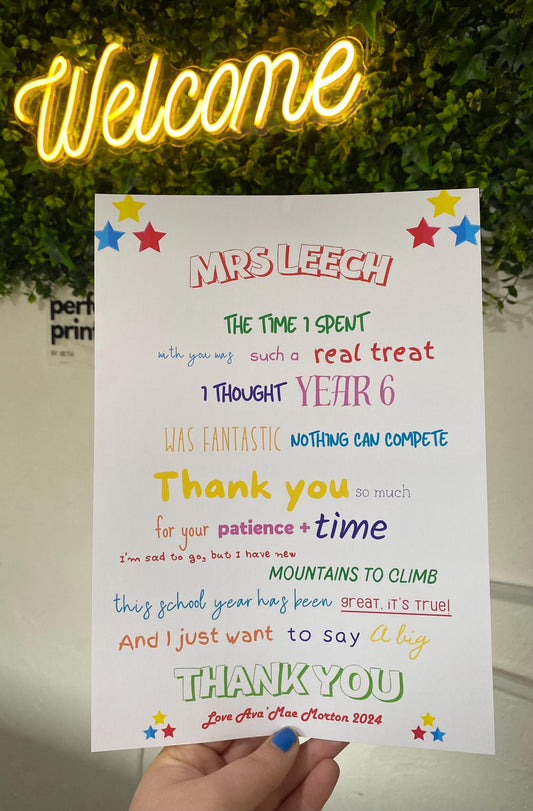 Welcome
print
MRS LEECH
THE TIME I SPENT
with you was such a real treat
I THOUGHT YEAR 6
WAS FANTASTIC NOTHING CAN COMPETE
Thank you so much
for your patience + time
I'm sad to go, but I have new
MOUNTAINS TO CLIMB
this school year has been great, it's true!
And I just want to say A big
THANK YOU
Love Ava'Mae Morton 2024